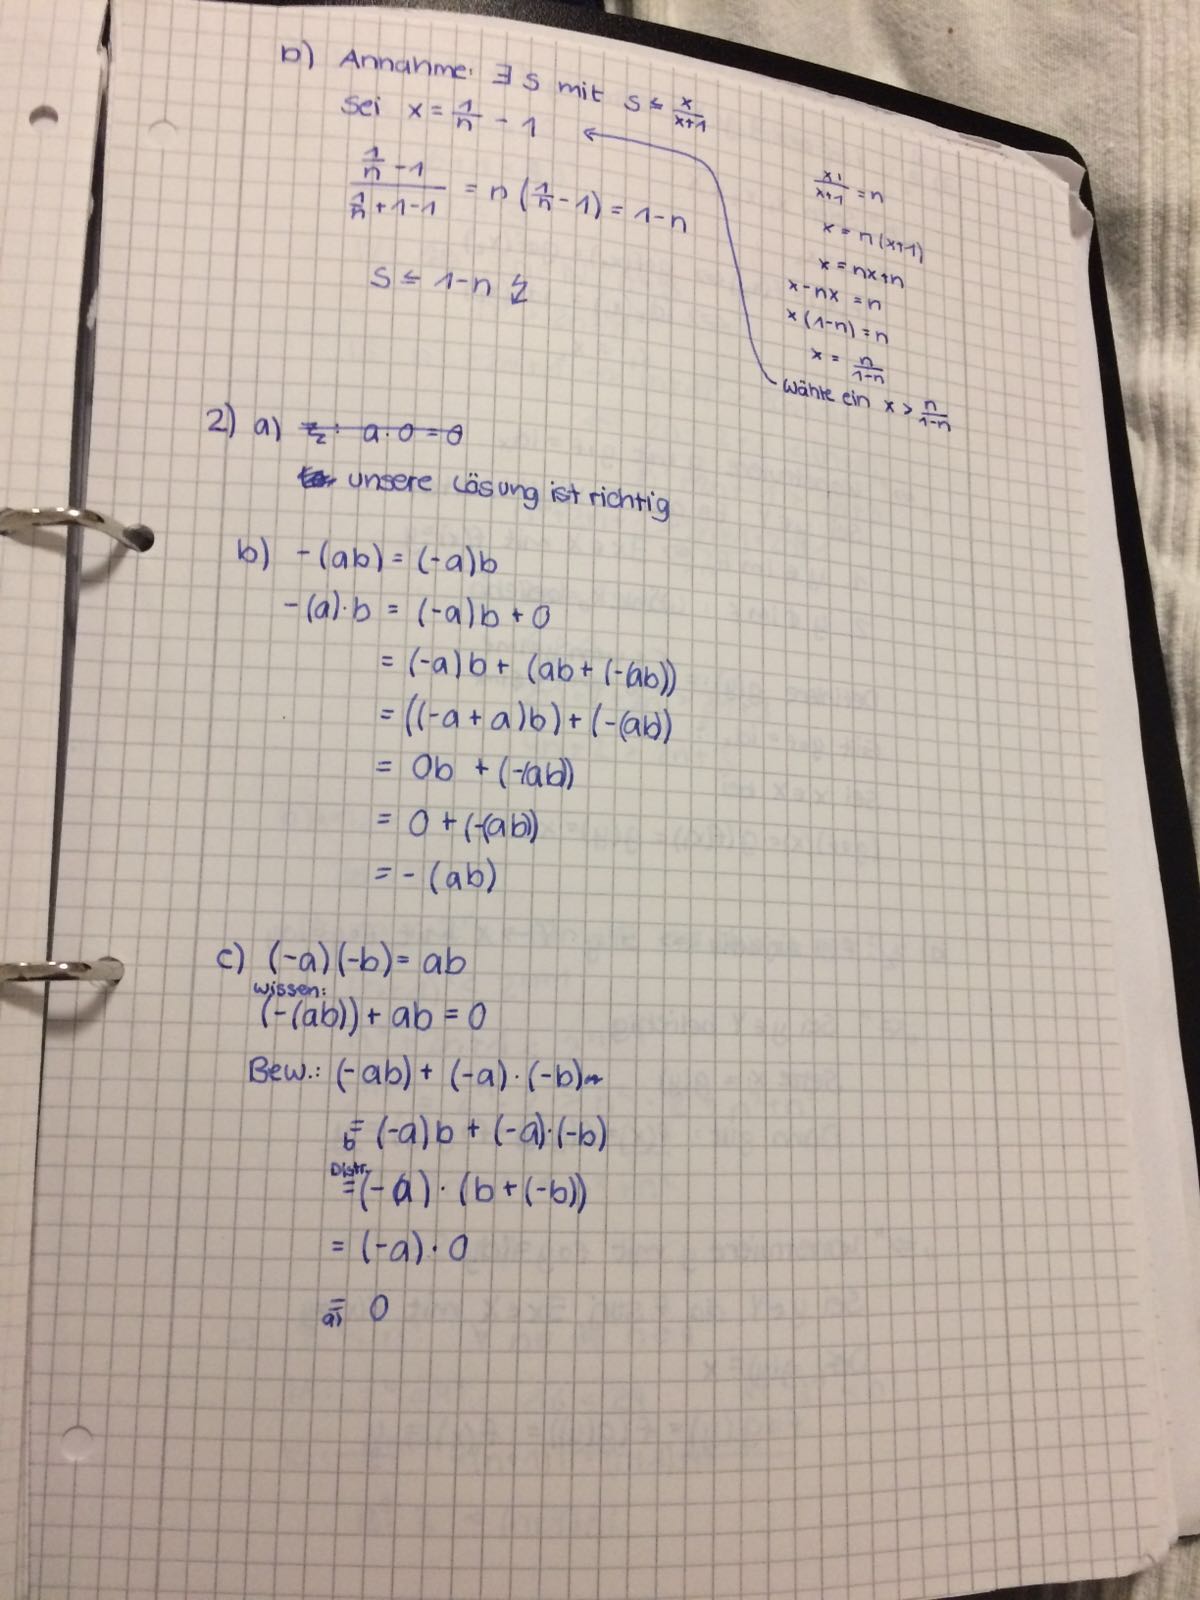 b) Annahme: ∃ s mit s ≤ x/(x+1)
Sei x = 1/n - 1
(1/n - 1)/(1/n + 1 - 1) = n (1/n - 1) = 1 - n
s ≤ 1 - n ↯
x/(x+1) = n
x = n(x+1)
x = nx+n
x - nx = n
x (1-n) = n
x = n/(1-n)
wähle ein x > n/(1-n)
2) a) z.z.: a · 0 = 0
unsere Lösung ist richtig
b) -(ab) = (-a)b
-(a)·b = (-a)b + 0
= (-a)b + (ab + (-(ab))
= ((-a + a)b) + (-(ab))
= 0b + (-(ab))
= 0 + (-(ab))
= - (ab)
c) (-a)(-b) = ab
wissen:
(-(ab)) + ab = 0
Bew.: (-ab) + (-a) · (-b)
b = (-a)b + (-a)·(-b)
Distr.
= (-a) · (b + (-b))
= (-a) · 0
a) = 0